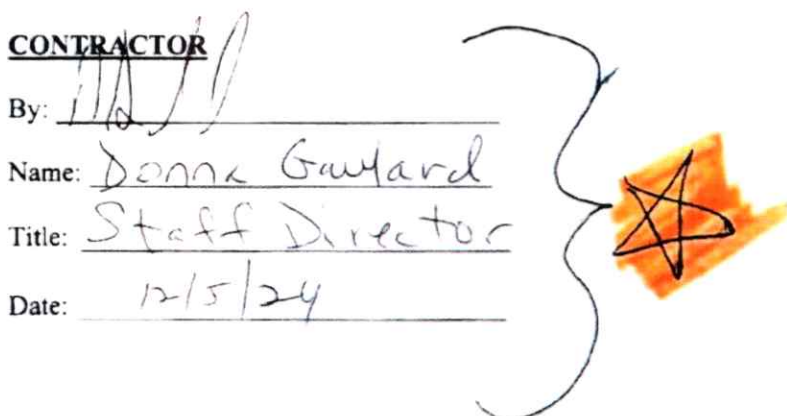 CONTRACTOR
By:
Name: Donna Gaylard
Title: Staff Director
Date: 12/5/24